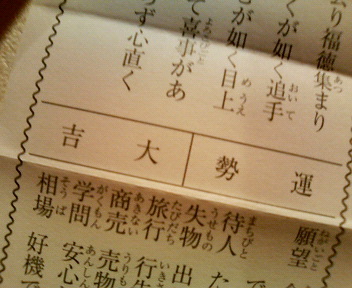 り福徳集まり
くが如く追手
が如く目上
て喜事があ
ず心直く
運勢
大吉
願望
待人
失物 出
旅行 行
商売 売物
学問 安心
相場 好機で